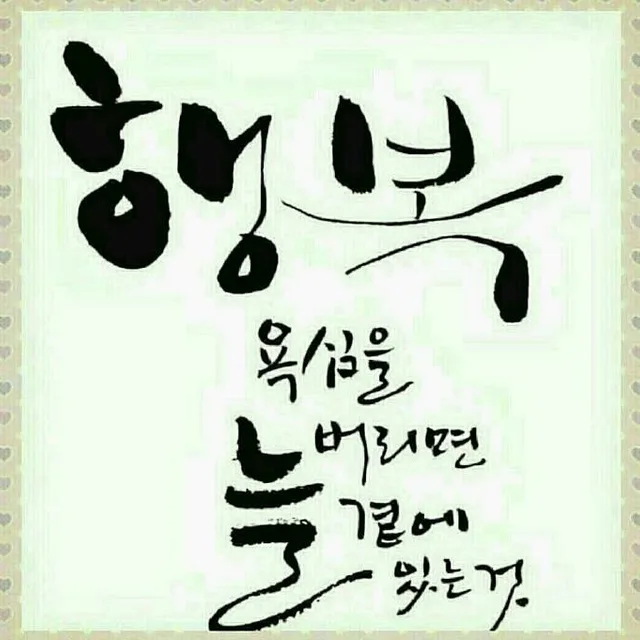 행복
욕심을
버리면
늘 곁에
있는 것.